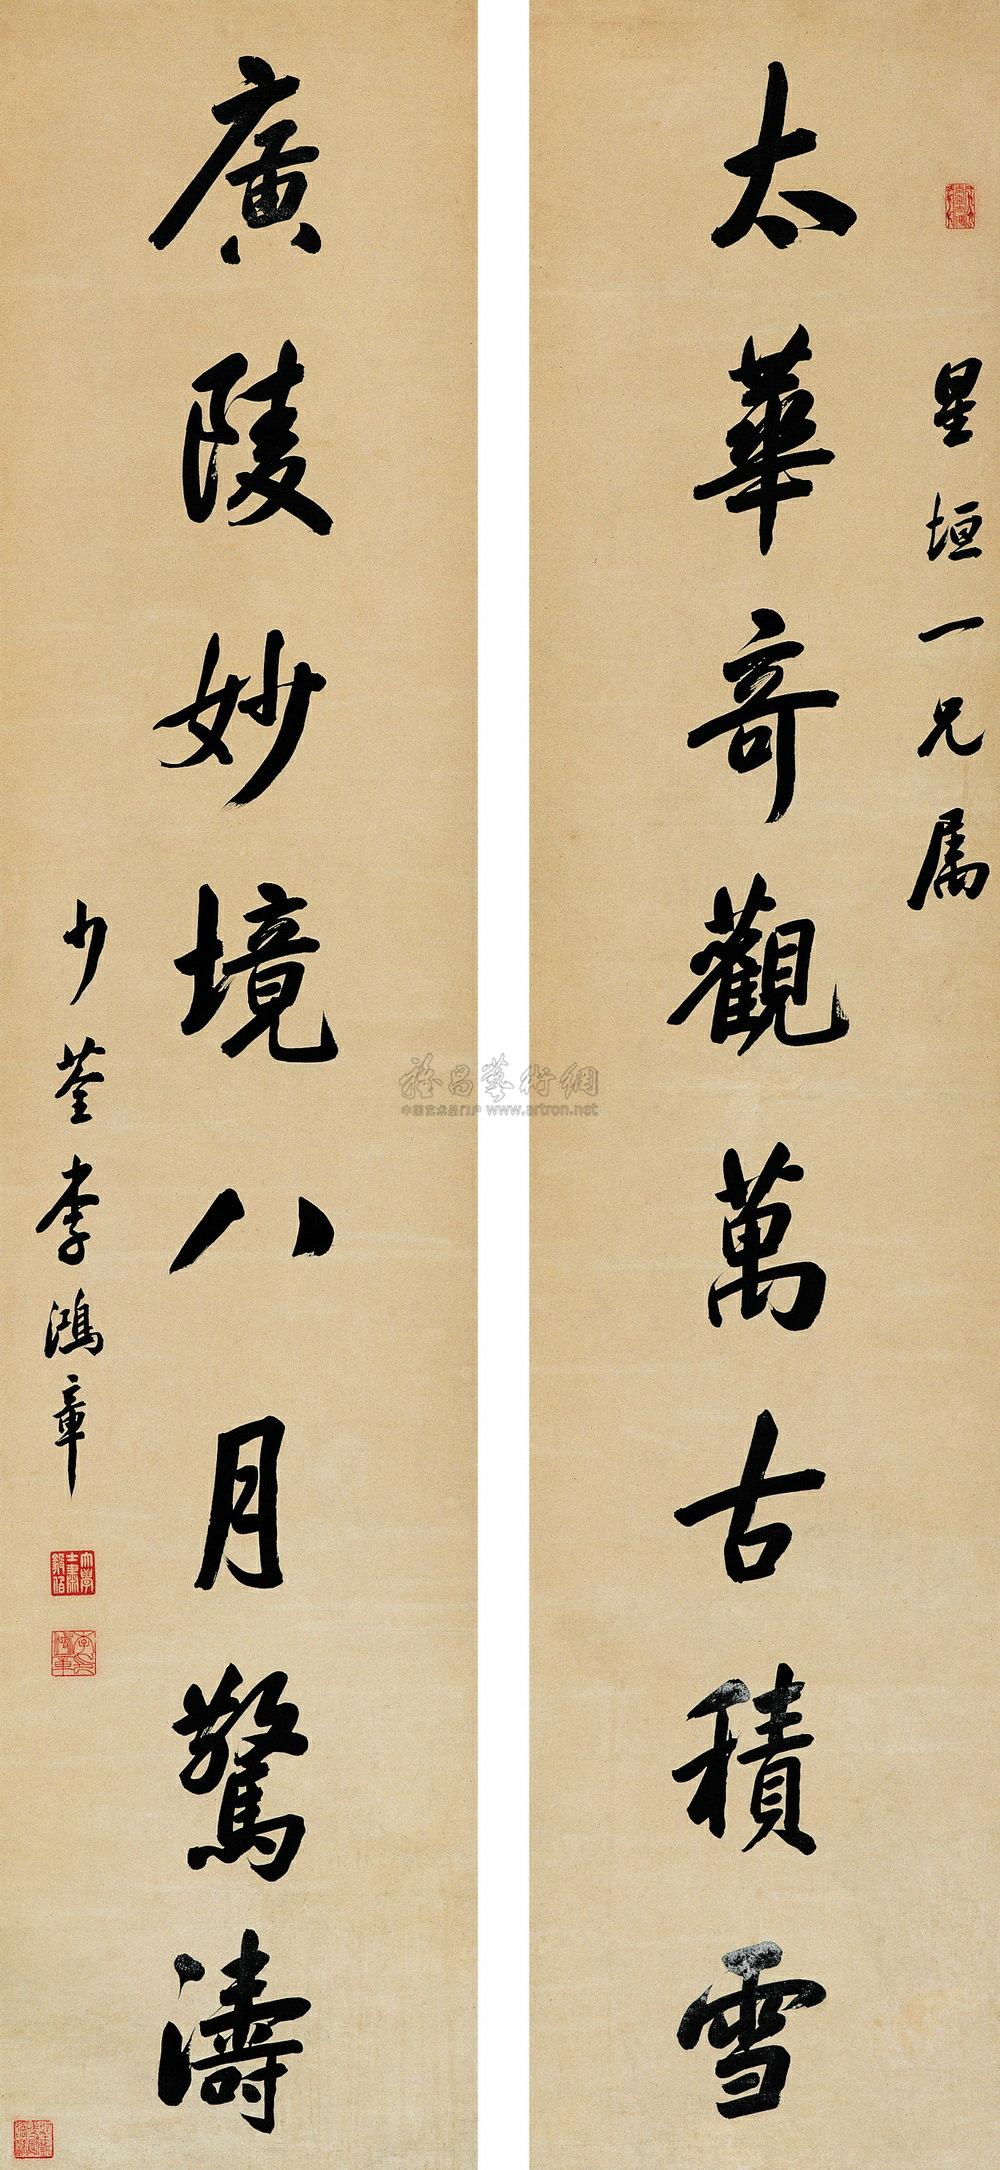 星垣一兄属
太華奇觀萬古積雪
廣陵妙境八月驚濤
少荃李鴻章
雅昌藝術網
中国艺术品门户 www.artron.net